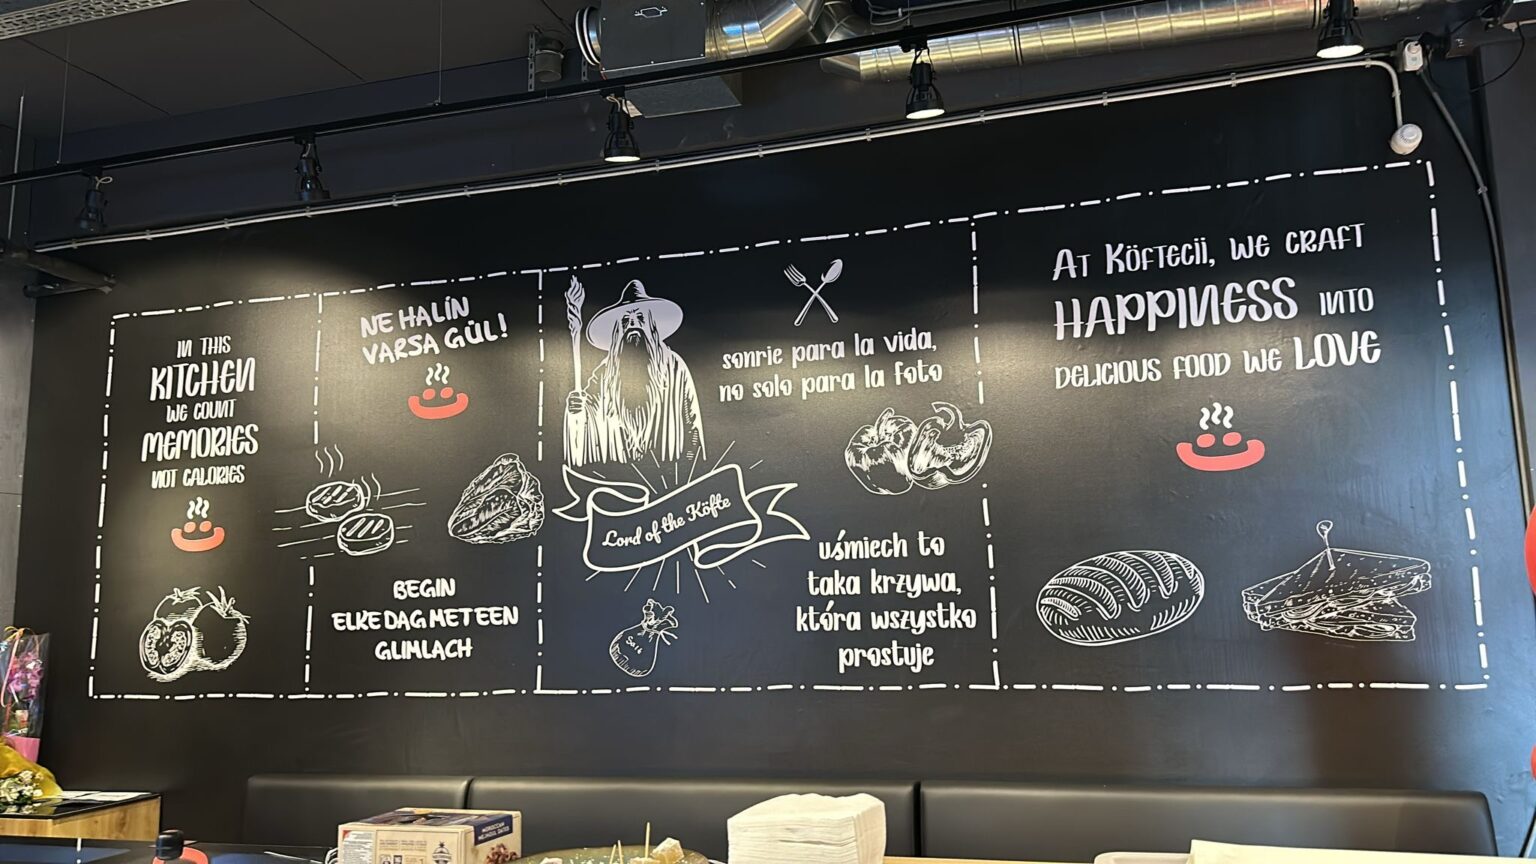 IN THIS
KITCHEN
WE COUNT
MEMORIES
NOT CALORIES
NE HALİN
VARSA GÜL!
BEGIN
ELKE DAG MET EEN
GLIMLACH
sonrie para la vida,
no solo para la foto
Lord of the Köfte
Salt
uśmiech to
taka krzywa,
która wszystko
prostuje
At Köftecii, we craft
HAPPINESS into
delicious food we LOVE
MOROCCAN
MEJHOUL DATES